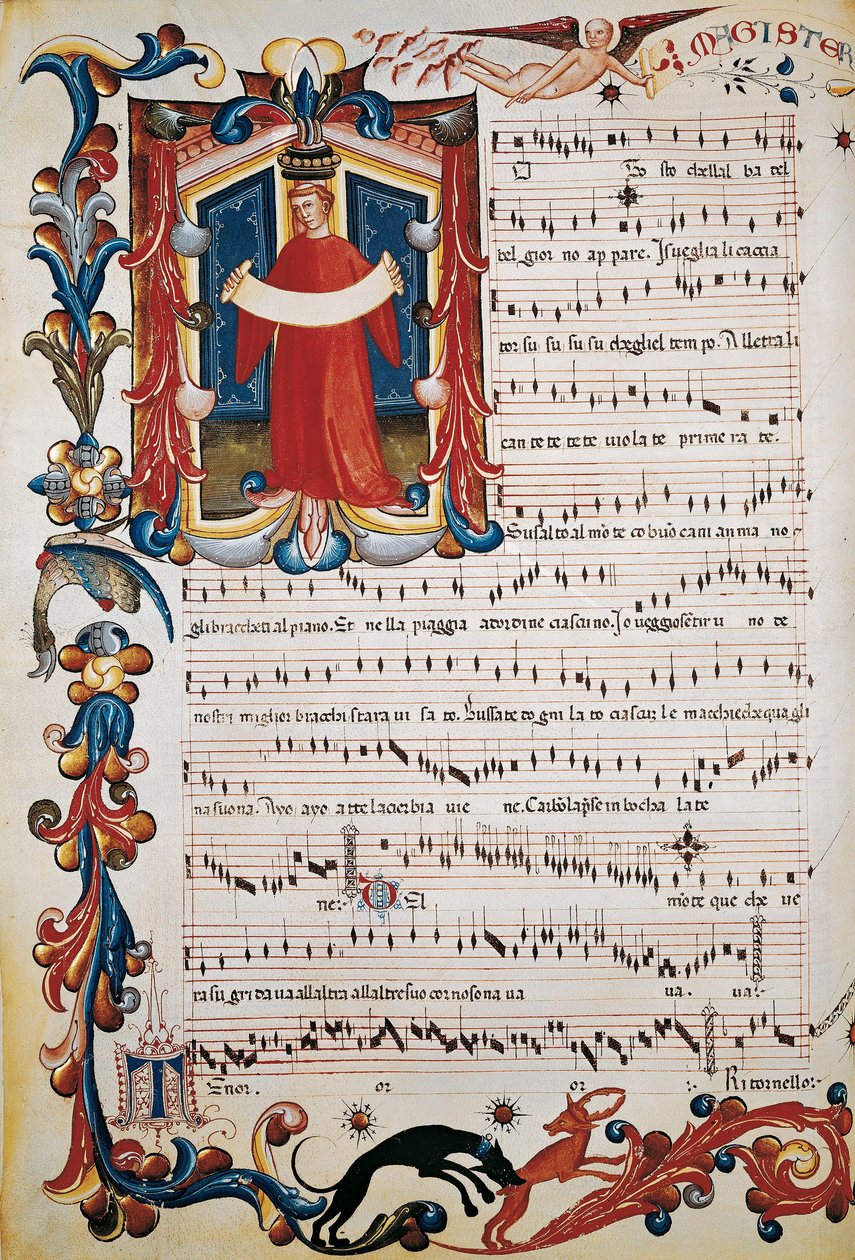 MAGISTER
To sto chellal ba tel
bel gior no ap pare. Isueglia li caccia
tor su su su su chegliel tem po. Alletta li
can te te te te uiola te primera te.
Su sal to al mōte co buō cani an ma no
gli bracchetti al piano. Et nella piaggia adordine ciascuno. Io ueggio sētir u no de
nostri miglior bracchi starauui sa to. Bussate dogni la to ciascū le macchie che qua gli
na suona. Ayo ayo atte la cierbia uie ne. Carbō la pse in bocha la te
ne:
DEl mōte que che ue
ra su gridaua allaltra allaltre suo corno sona ua ua ua:
TEnor. or or Ritornello: